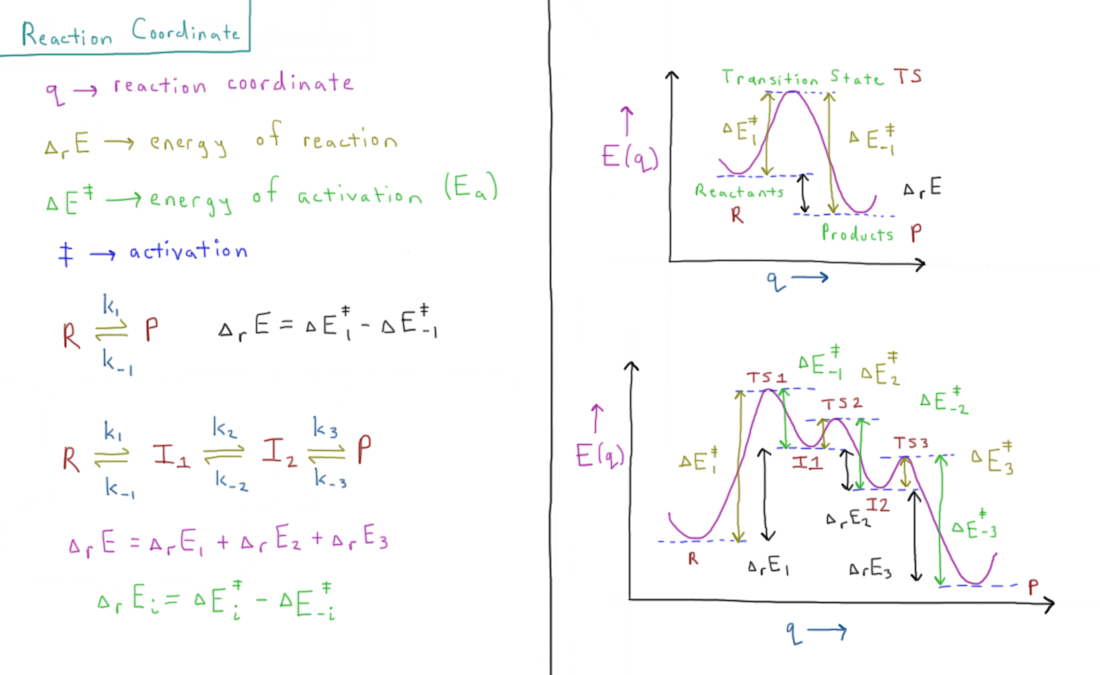 Reaction Coordinate
q → reaction coordinate
ΔᵣE → energy of reaction
ΔE‡ → energy of activation (Eₐ)
‡ → activation
k₁
R ⇌ P
k₋₁
ΔᵣE = ΔE₁‡ - ΔE₋₁‡
k₁ k₂ k₃
R ⇌ I₁ ⇌ I₂ ⇌ P
k₋₁ k₋₂ k₋₃
ΔᵣE = ΔᵣE₁ + ΔᵣE₂ + ΔᵣE₃
ΔᵣEᵢ = ΔEᵢ‡ - ΔE₋ᵢ‡
Transition State TS
ΔE₁‡ ΔE₋₁‡
↑
E(q)
Reactants
R
ΔᵣE
Products P
q →
ΔE₋₁‡ ΔE₂‡
TS1
TS2 ΔE₋₂‡
↑
E(q)
TS3
ΔE₁‡ I1 ΔE₃‡
I2
ΔᵣE₂ ΔE₋₃‡
R ΔᵣE₁ ΔᵣE₃
P
q →